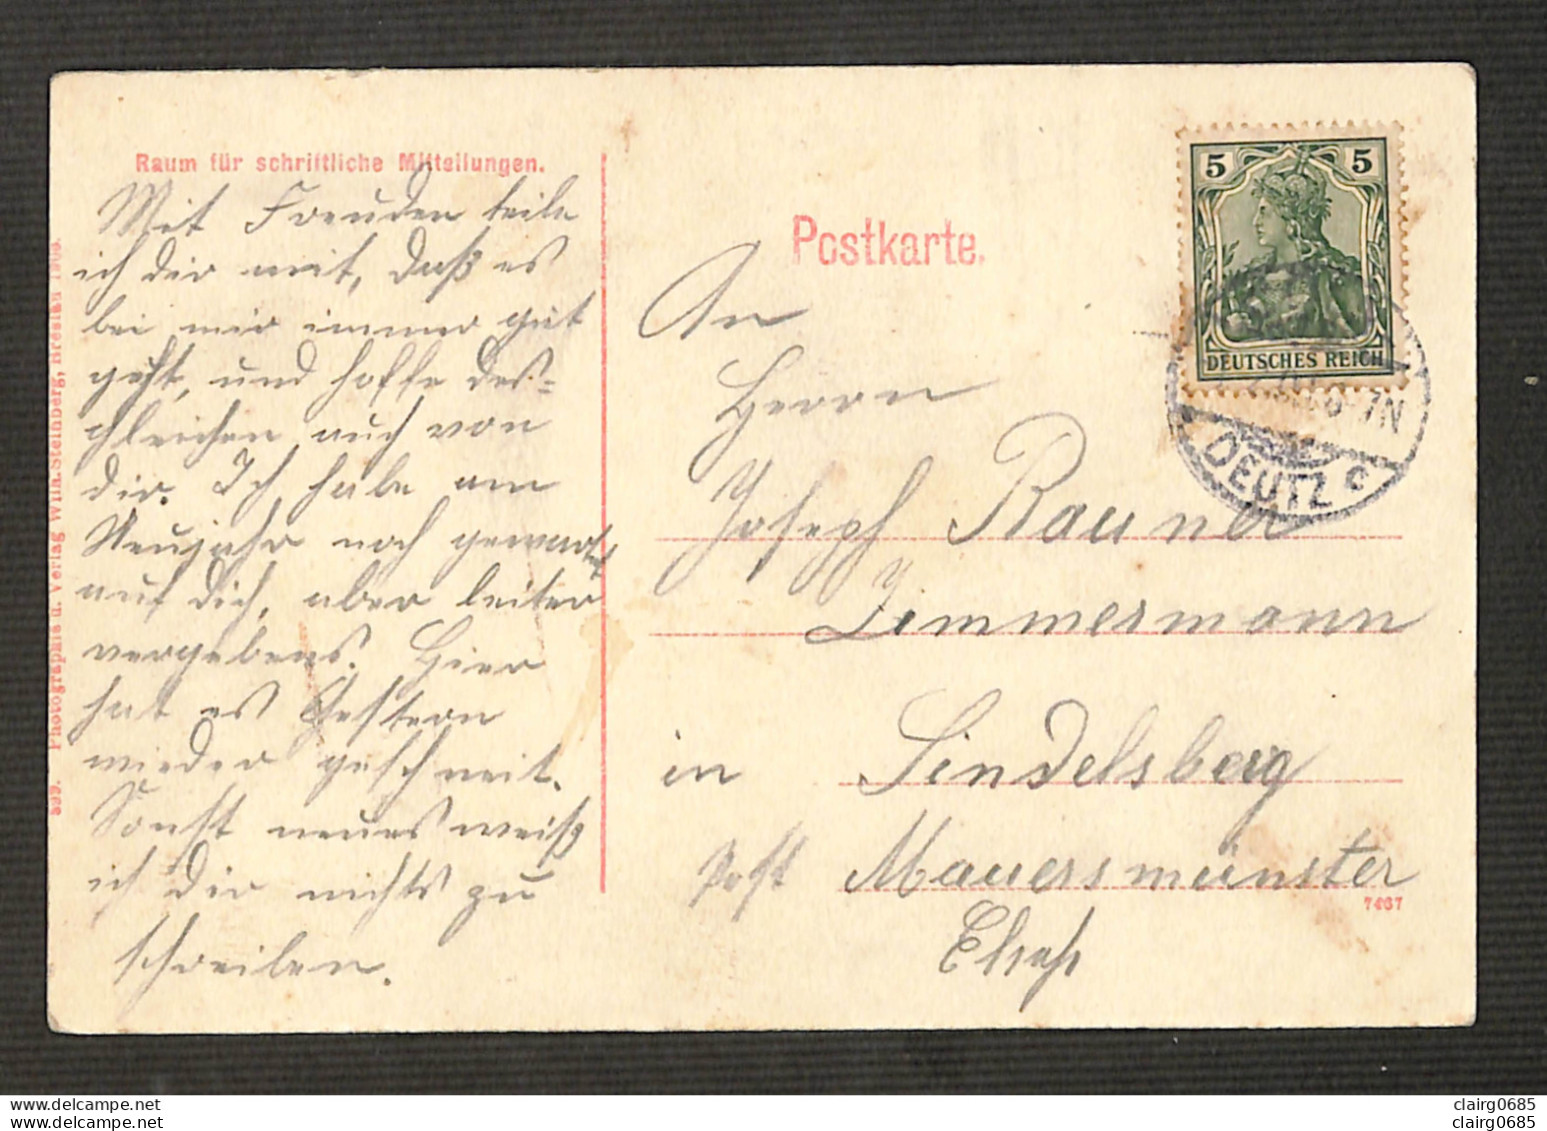 Raum für schriftliche Mitteilungen.
Mit Freuden teile
ich dir mit, daß es
bei mir immer gut
geht, und hoffe des-
gleichen auch von
dir. Ich habe am
Neujahr noch gewartet
auf dich, aber leider
vergebens. Hier
hat es gestern
wieder geschneit.
Sonst neues weiß
ich dir nichts zu
schreiben.
899. Photographie u. Verlag Wilh. Steinberg, Breslau
Postkarte.
An
Herrn
Joseph Rauner
Zimmermann
in Sindelsberg
Post Mauersmünster
Elsaß
7467
5 5
DEUTSCHES REICH
6-7N
DEUTZ c
clairg0685
clairg0685
clairg0685
clairg0685